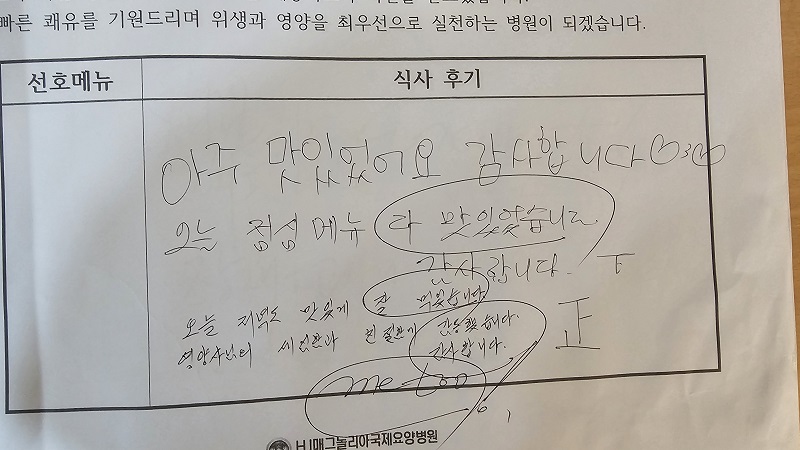 빠른 쾌유를 기원드리며 위생과 영양을 최우선으로 실천하는 병원이 되겠습니다.
선호메뉴 식사 후기
아주 맛있었어요 감사합니다
오늘 점심 메뉴 다 맛있었습니다
감사합니다. ㅜ
오늘 저녁도 맛있게 잘 먹었습니다
영양사님의 세심함과 친절함에 감동했습니다.
감사합니다. 正
me too
HJ매그놀리아국제요양병원